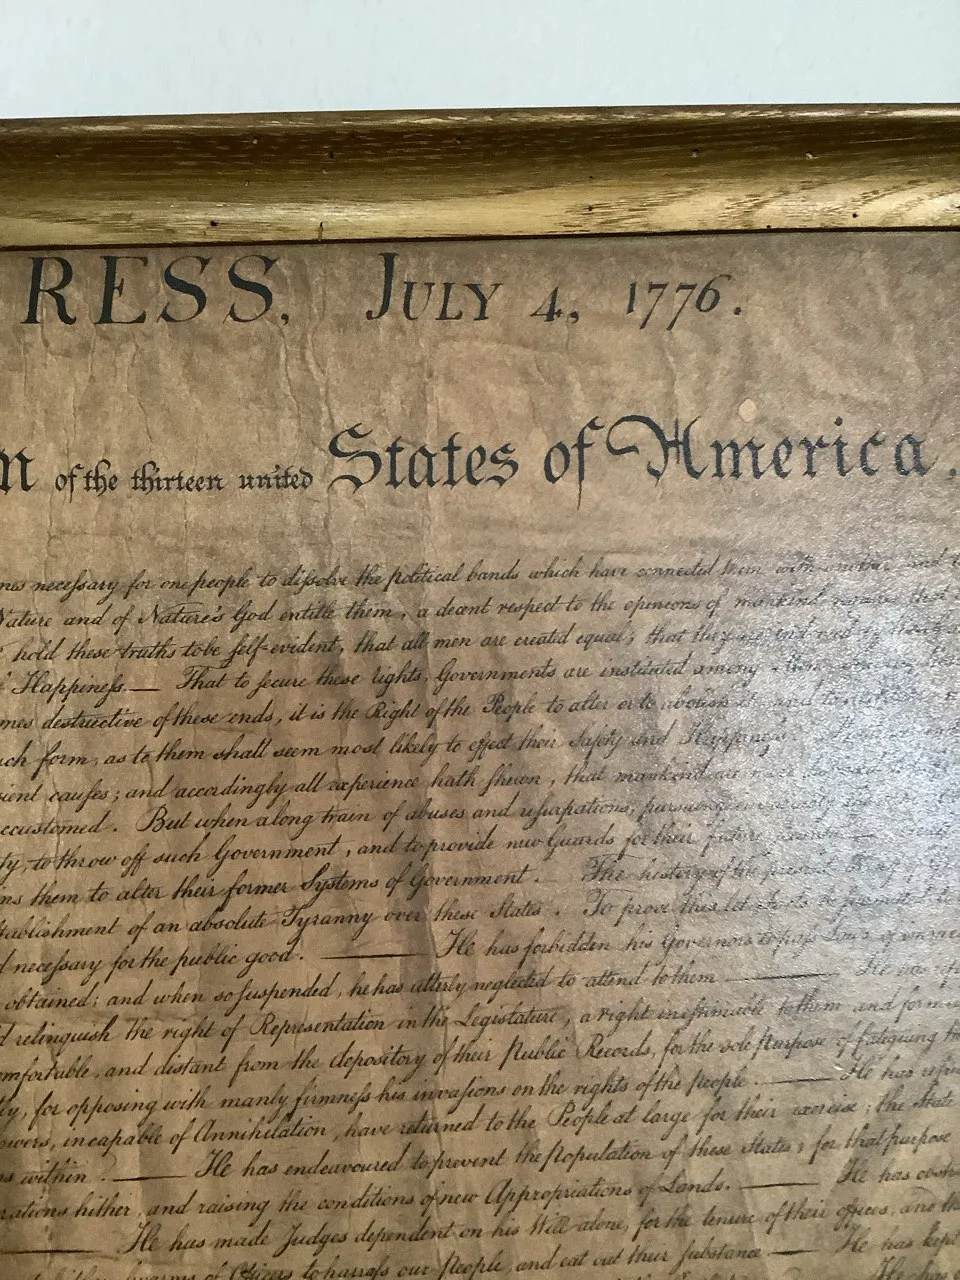 RESS, JULY 4, 1776.
n of the thirteen united States of America.
necessary for one people to dissolve the political bands which have connected them with another and
Nature and of Nature's God entitle them, a decent respect to the opinions of mankind requires that
hold these truths to be self-evident, that all men are created equal, that they
Happiness.— That to secure these rights, Governments are instituted among
mes destructive of these ends, it is the Right of the People to alter or to abolish it, and to
ch form, as to them shall seem most likely to effect their Safety and Happiness.
ient causes; and accordingly all experience hath shewn, that mankind are more
ccustomed. But when a long train of abuses and usurpations, pursuing invariably
ty, to throw off such Government, and to provide new Guards for their future
ns them to alter their former Systems of Government. The history of the present
tablishment of an absolute Tyranny over these States. To prove this let
d necessary for the public good. — He has forbidden his Governors to pass Laws of
obtained; and when so suspended, he has utterly neglected to attend to them — He has
d relinquish the right of Representation in the Legislature, a right inestimable to them and form
omfortable, and distant from the depository of their Public Records, for the sole Purpose of fatiguing
ly, for opposing with manly firmness his invasions on the rights of the people. — He has
owers, incapable of Annihilation, have returned to the People at large for their exercise; the State
ns within. — He has endeavoured to prevent the Population of these States; for that purpose
rations hither, and raising the conditions of new Appropriations of Lands. — He has obst
— He has made Judges dependent on his Will alone, for the tenure of their offices, and the
swarms of Officers to harrass our People, and eat out their substance — He has kept